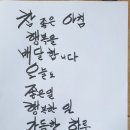 참 좋은 아침
행복을
배달합니다
오늘도
좋은일
행복한 일
가득한 하루